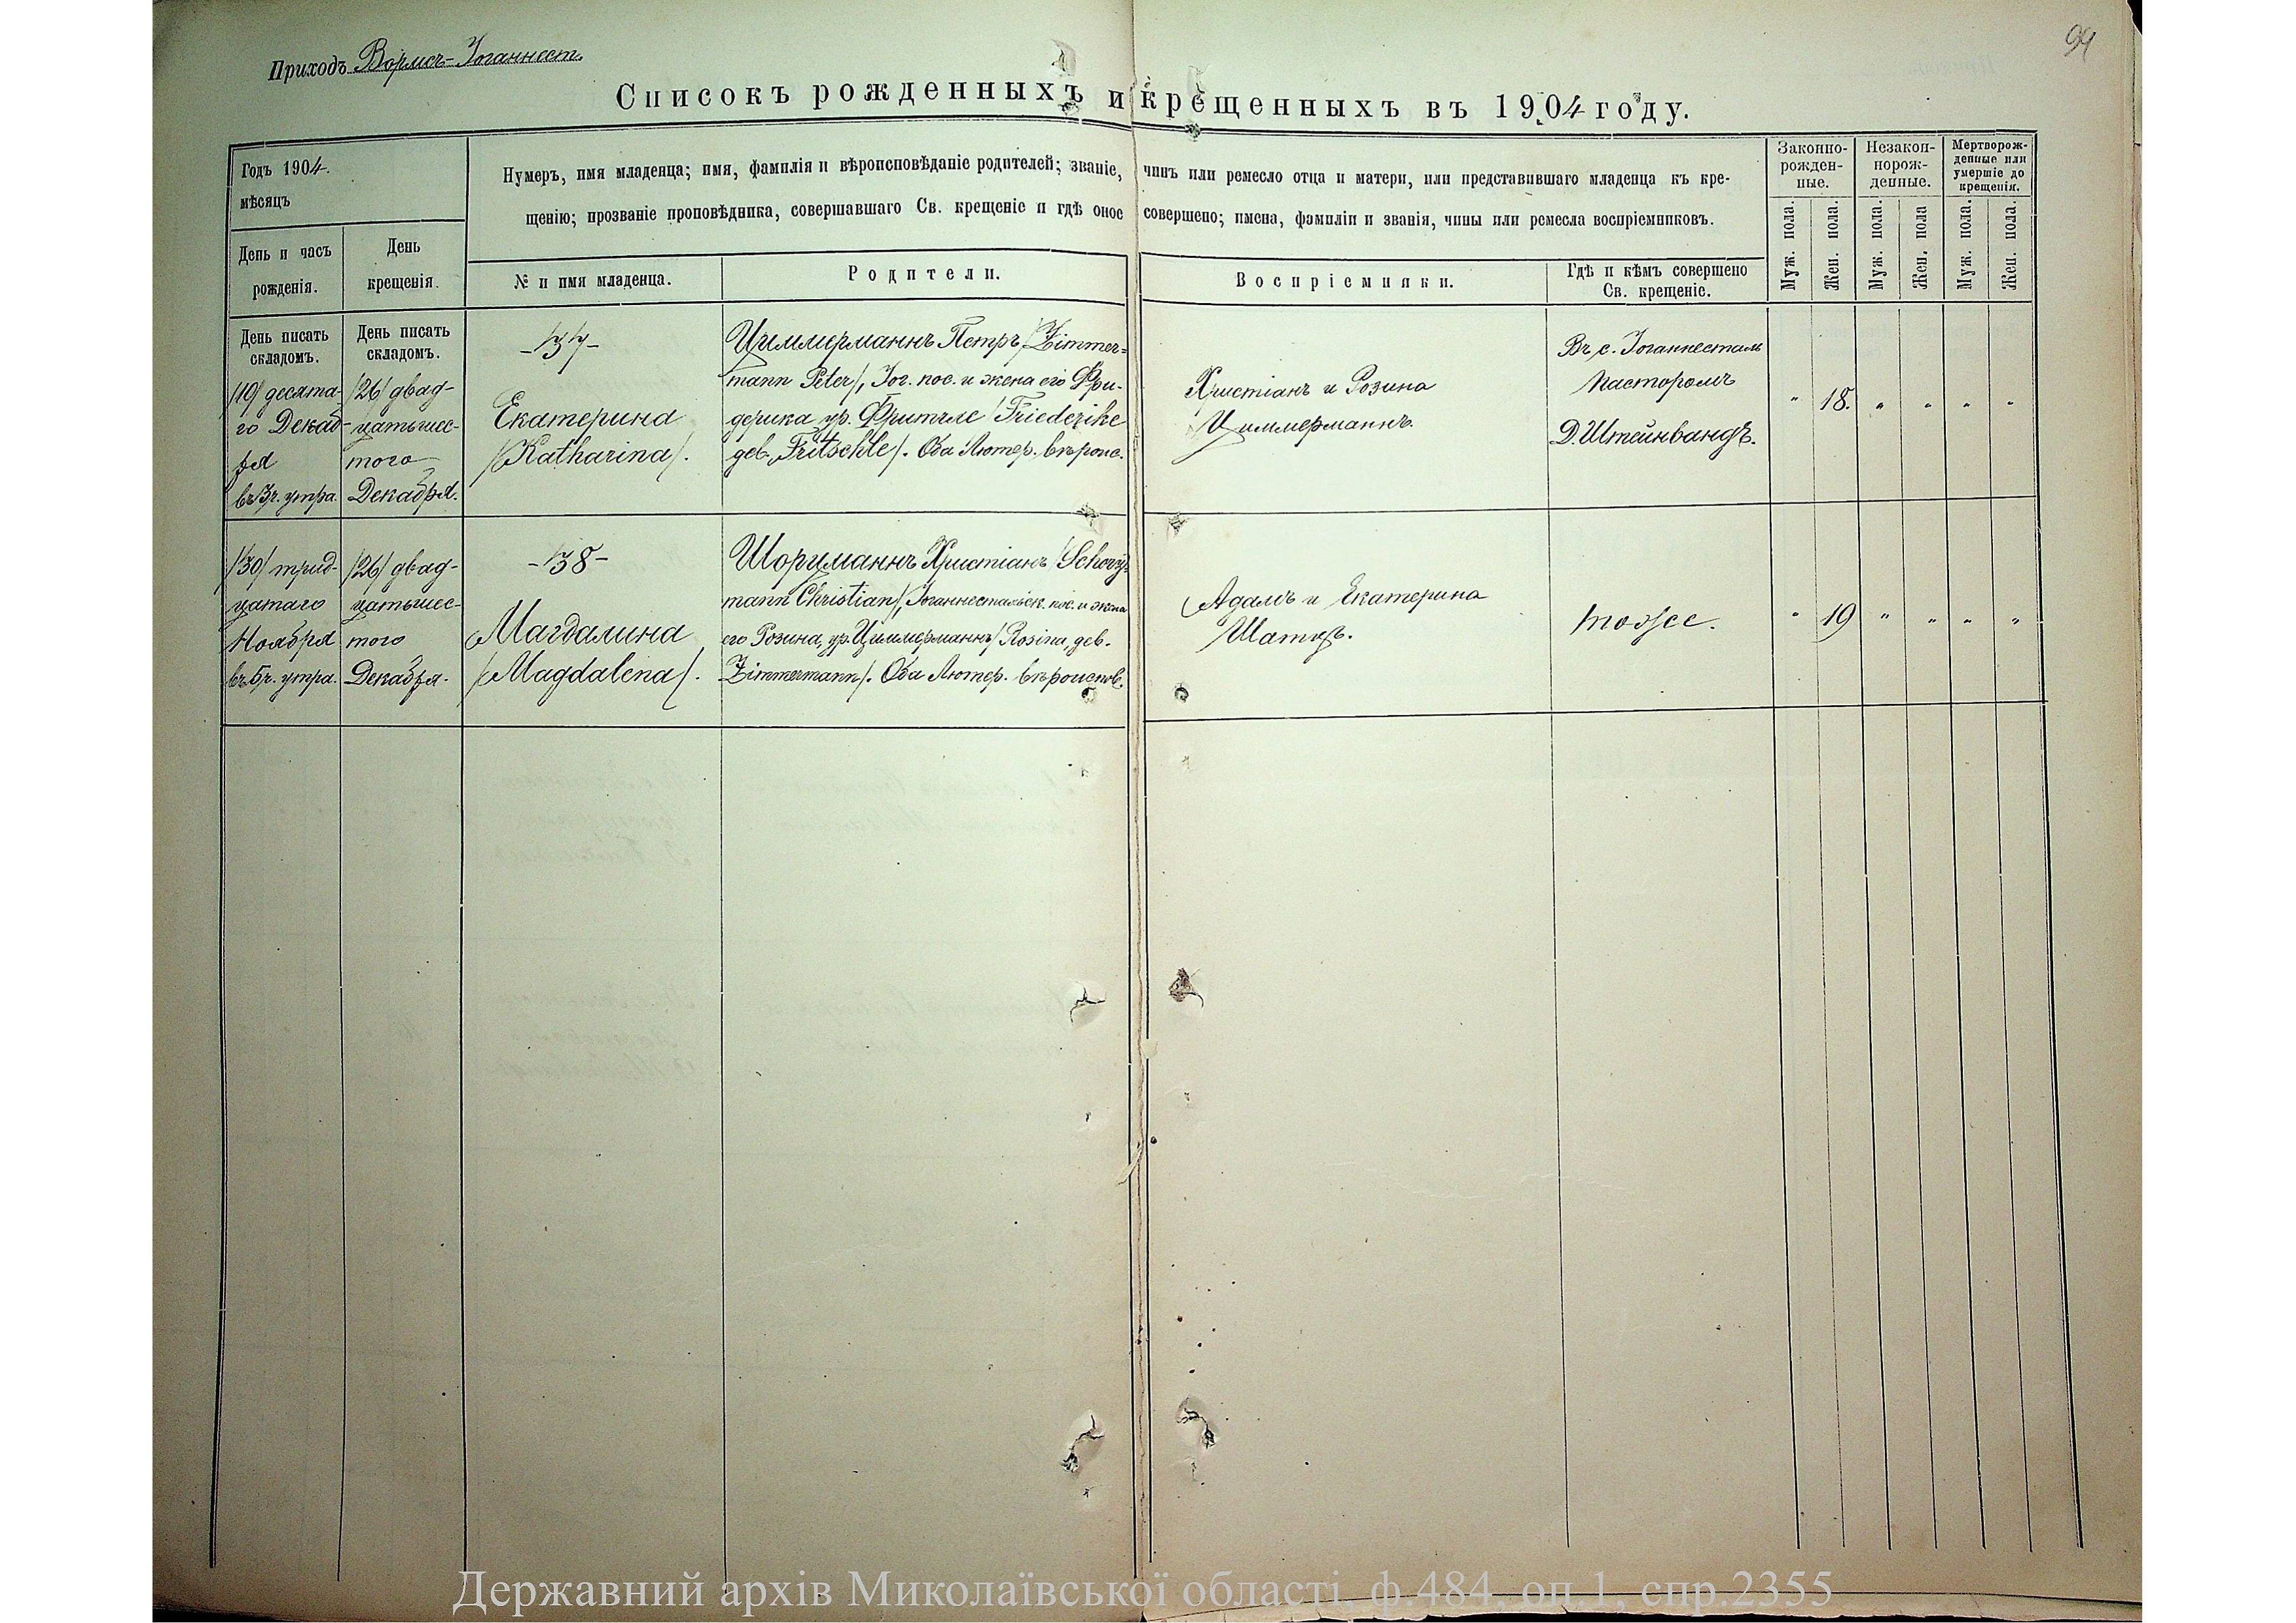 Приходъ Вормсъ-Іоганнест.
94
Списокъ рожденныхъ и крещенныхъ въ 1904 году.
Годъ 1904.
мѣсяцъ
День и часъ
рожденія.
День
крещенія.
Нумеръ, имя младенца; имя, фамилія и вѣроисповѣданіе родителей; званіе, чинъ или ремесло отца и матери, или представившаго младенца къ кре-
щенію; прозваніе проповѣдника, совершавшаго Св. крещеніе и гдѣ оное совершено; имена, фамиліи и званія, чины или ремесла воспріемниковъ.
№ и имя младенца.
Родители.
Воспріемники.
Гдѣ и кѣмъ совершено
Св. крещеніе.
Законно-
рожден-
ные.
Незакон-
норож-
денные.
Мертворож-
денные или
умершіе до
крещенія.
Муж. пола.
Жен. пола.
Муж. пола.
Жен. пола
Муж. пола.
Жен. пола.
День писать
складомъ.
/10/ десята-
го Декаб-
ря
въ 3 ч. утра.
День писать
складомъ.
/26/ двад-
цатьшес-
того
Декабря.
-37-
Екатерина
/Katharina/.
Циммерманнъ Петръ /Zimmer=
mann Peter/, Іог. пос. и жена его Фри-
дерика ур. Фритшле /Friederike
geb. Fritschle/. Оба Лютер. вѣроис.
Христіанъ и Розина
Циммерманнъ.
Въ с. Іоганнесталь
пасторомъ
Д. Штейнвандъ.
" 18. " " " "
/30/ трид-
цатаго
Ноября
въ 5 ч. утра.
/26/ двад-
цатьшес-
того
Декабря.
-38-
Магдалина
/Magdalena/.
Шорцманнъ Христіанъ /Schorz=
mann Christian/, Іоганнестальск. пос. и жена
его Розина, ур. Циммерманнъ /Rosina, geb.
Zimmermann/. Оба Лютер. вѣроиспов.
Адамъ и Екатерина
Шатцъ.
тоже.
" 19 " " " "
Державний архів Миколаївської області, ф.484, оп.1, спр.2355